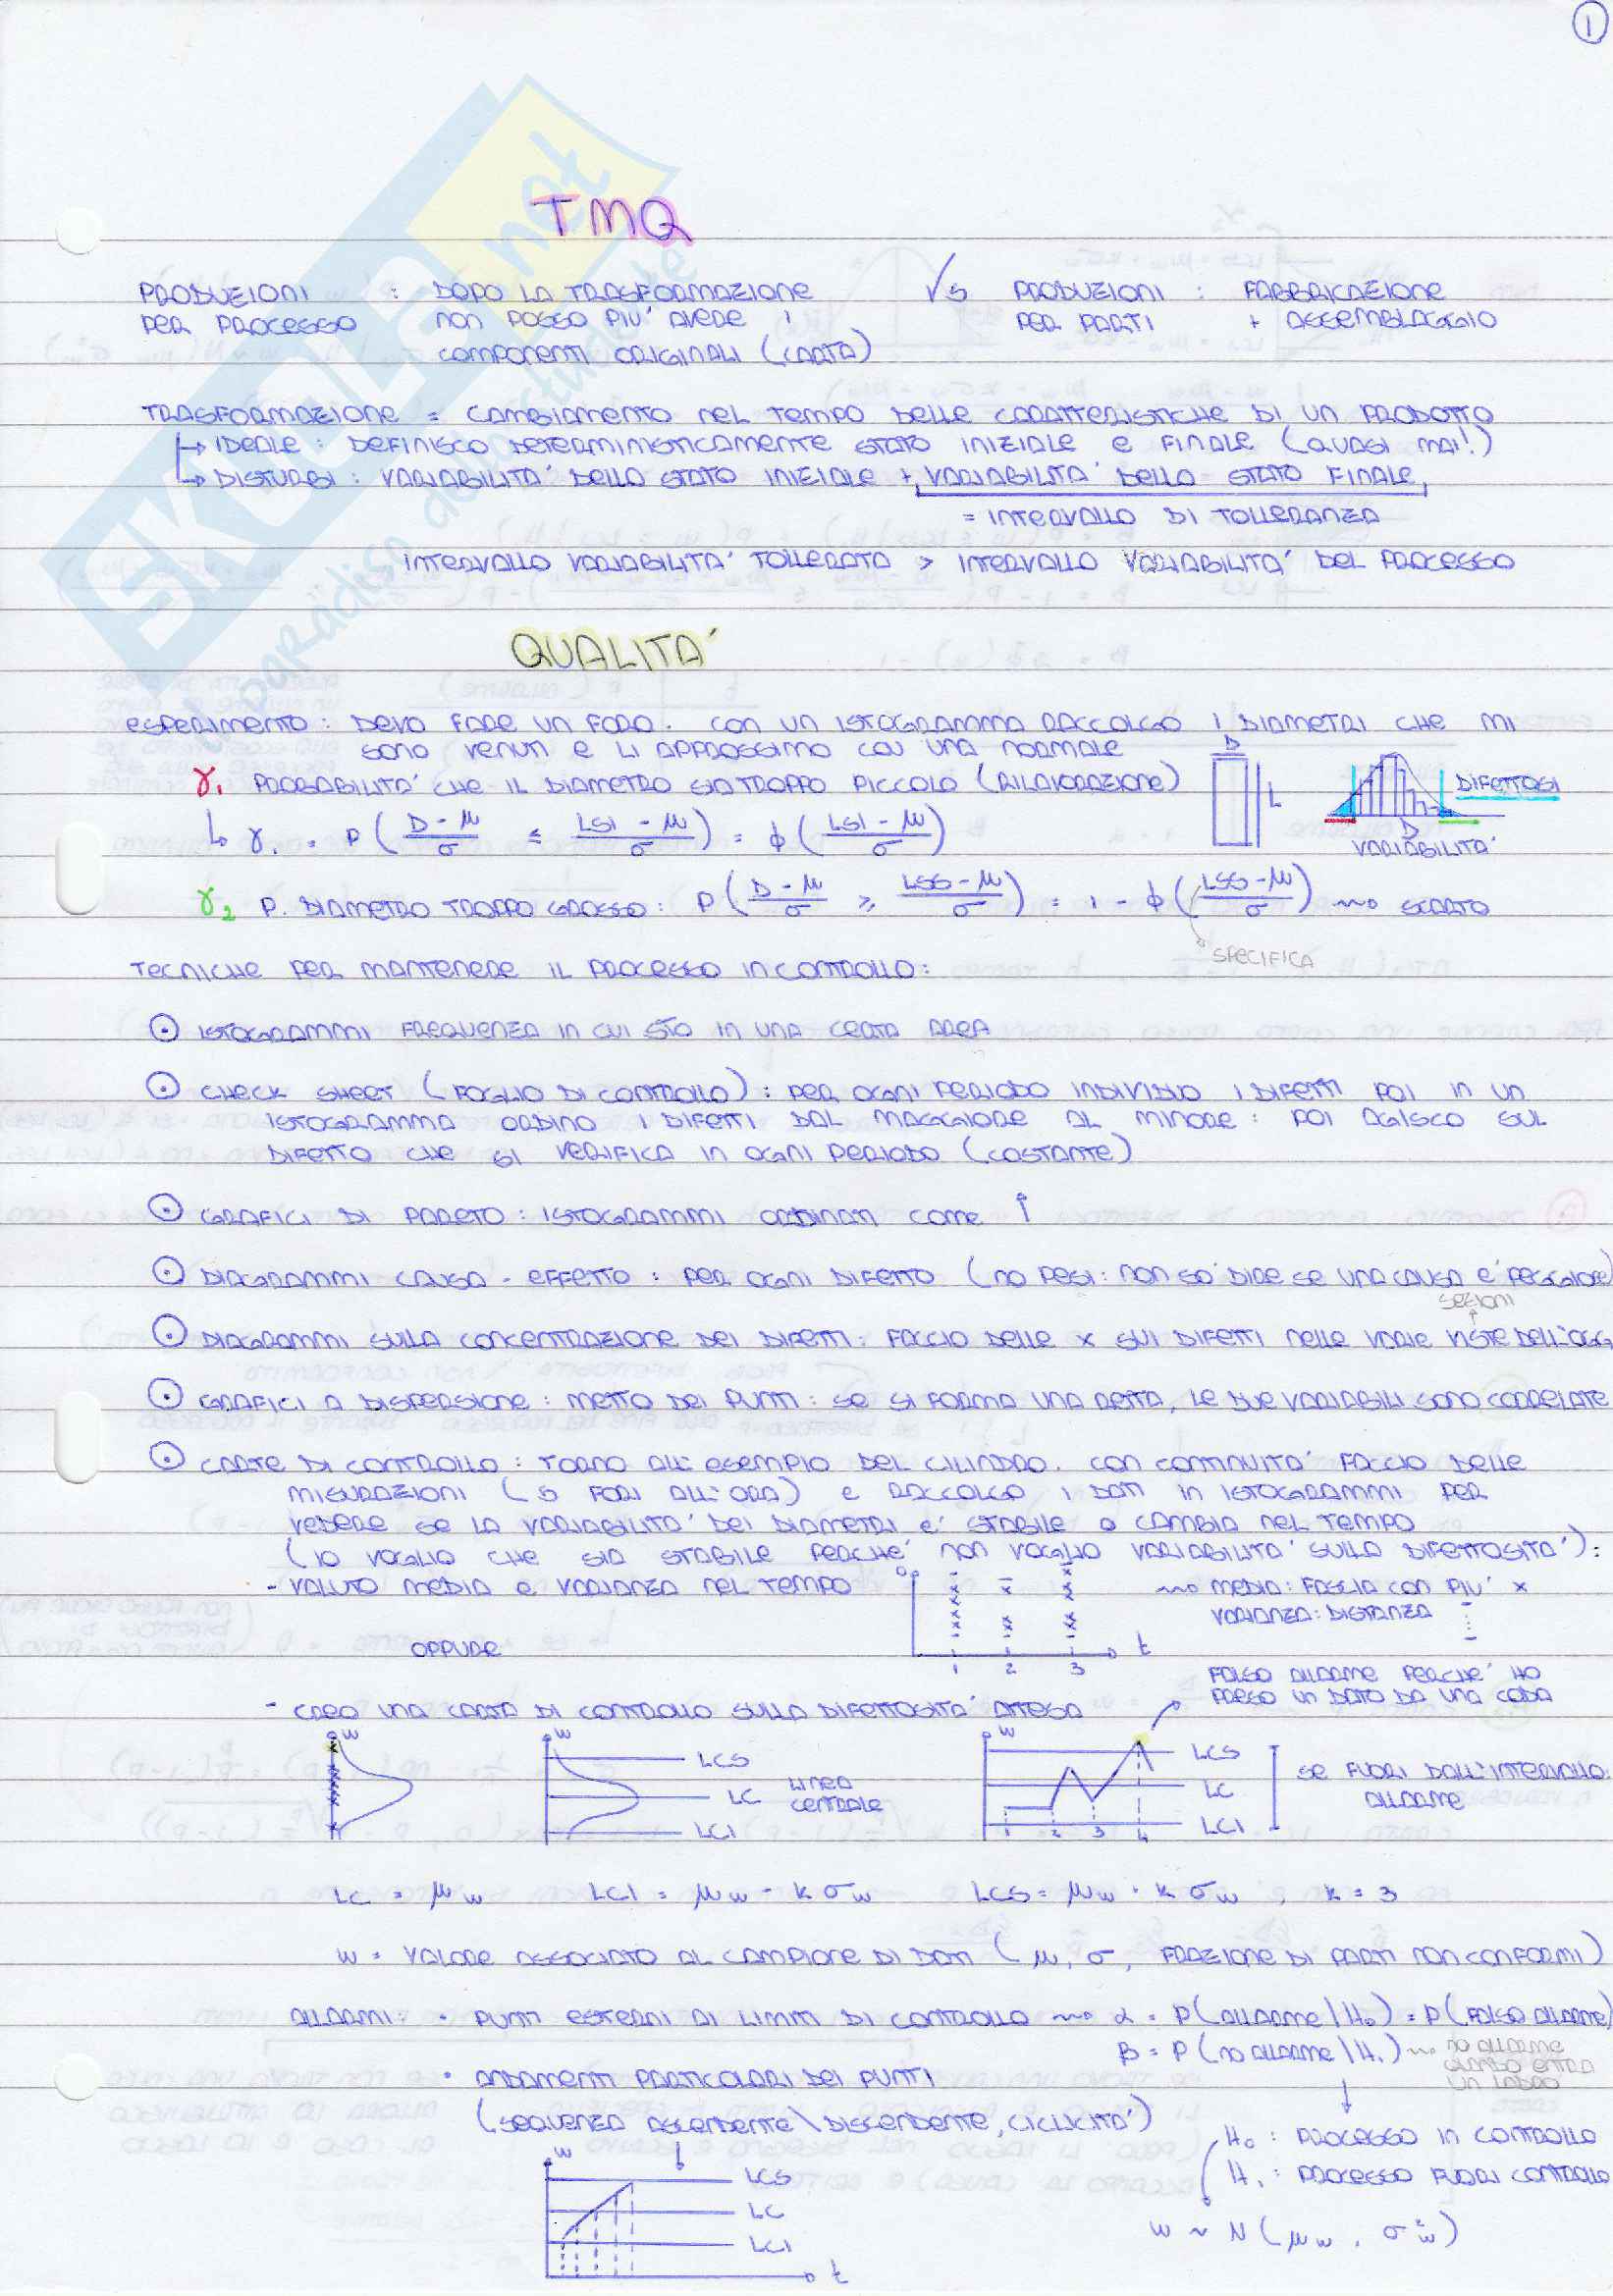 1
TMQ
PRODUZIONI PER PROCESSO : DOPO LA TRASFORMAZIONE NON POSSO PIU' AVERE I COMPONENTI ORIGINALI (CARTA)
VS PRODUZIONI PER PARTI : FABBRICAZIONE + ASSEMBLAGGIO
TRASFORMAZIONE = CAMBIAMENTO NEL TEMPO DELLE CARATTERISTICHE DI UN PRODOTTO
↳ IDEALE : DEFINISCO DETERMINISTICAMENTE STATO INIZIALE E FINALE (QUASI MAI!)
↳ DISTURBI : VARIABILITA' DELLO STATO INIZIALE + VARIABILITA' DELLO STATO FINALE
= INTERVALLO DI TOLLERANZA
INTERVALLO VARIABILITA' TOLLERATA > INTERVALLO VARIABILITA' DEL PROCESSO
QUALITA'
ESPERIMENTO : DEVO FARE UN FORO. CON UN ISTOGRAMMA RACCOLGO I DIAMETRI CHE MI
SONO VENUTI E LI APPROSSIMO CON UNA NORMALE
D
L
DIFETTOSI
D
VARIABILITA'
γ₁ PROBABILITA' CHE IL DIAMETRO SIA TROPPO PICCOLO (RILAVORAZIONE)
↳ γ₁ = P((D-μ)/σ ≤ (LSI-μ)/σ) = ϕ((LSI-μ)/σ)
γ₂ P. DIAMETRO TROPPO GROSSO : P((D-μ)/σ ≥ (LSS-μ)/σ) = 1 - ϕ((LSS-μ)/σ) ~> SCARTO
SPECIFICA
TECNICHE PER MANTENERE IL PROCESSO IN CONTROLLO:
⊙ ISTOGRAMMI FREQUENZA IN CUI STO IN UNA CERTA AREA
⊙ CHECK SHEET (FOGLIO DI CONTROLLO) : PER OGNI PERIODO INDIVIDUO I DIFETTI POI IN UN
ISTOGRAMMA ORDINO I DIFETTI DAL MAGGIORE AL MINORE : POI AGISCO SUL
DIFETTO CHE SI VERIFICA IN OGNI PERIODO (COSTANTE)
⊙ GRAFICI DI PARETO : ISTOGRAMMI ORDINATI COME ↑
⊙ DIAGRAMMI CAUSA - EFFETTO : PER OGNI DIFETTO (NO PESI : NON SO DIRE SE UNA CAUSA E' PEGGIORE)
SEZIONI
⊙ DIAGRAMMI SULLA CONCENTRAZIONE DEI DIFETTI : FACCIO DELLE X SUI DIFETTI NELLE VARIE VISTE DELL'OGG
⊙ GRAFICI A DISPERSIONE : METTO DEI PUNTI : SE SI FORMA UNA RETTA, LE DUE VARIABILI SONO CORRELATE
⊙ CARTE DI CONTROLLO : TORNO ALL'ESEMPIO DEL CILINDRO. CON CONTINUITA' FACCIO DELLE
MISURAZIONI (5 FORI ALL'ORA) E RACCOLGO I DATI IN ISTOGRAMMI PER
VEDERE SE LA VARIABILITA' DEI DIAMETRI E' STABILE O CAMBIA NEL TEMPO
(IO VOGLIO CHE SIA STABILE PERCHE' NON VOGLIO VARIABILITA' SULLA DIFETTOSITA') :
- VALUTO MEDIA E VARIANZA NEL TEMPO
1 2 3 t
~> MEDIA : FASCIA CON PIU' X
VARIANZA : DISTANZA
OPPURE
FALSO ALLARME PERCHE' HO
PRESO UN DATO DA UNA CODA
- CREO UNA CARTA DI CONTROLLO SULLA DIFETTOSITA' ATTESA
W
W
LCS
LC LINEA CENTRALE
LCI
W
LCS
LC
LCI
1 2 3 4
SE FUORI DALL'INTERVALLO:
ALLARME
LC = μw LCI = μw - K σw LCS = μw + K σw , K = 3
W = VALORE ASSOCIATO AL CAMPIONE DI DATI (μ, σ, FRAZIONE DI PARTI NON CONFORMI)
ALLARMI : • PUNTI ESTERNI AI LIMITI DI CONTROLLO ~> α = P(ALLARME|H₀) = P(FALSO ALLARME)
β = P(NO ALLARME|H₁) ~> NO ALLARME
QUANDO ENTRA
UN LADRO
• ANDAMENTI PARTICOLARI DEI PUNTI
(SEQUENZA ASCENDENTE\DISCENDENTE, CICLICITA')
H₀ : PROCESSO IN CONTROLLO
H₁ : PROCESSO FUORI CONTROLLO
W ~ N(μw, σ²w)
W
LCS
LC
LCI
t
SKUOLA.net
il paradiso dello studente